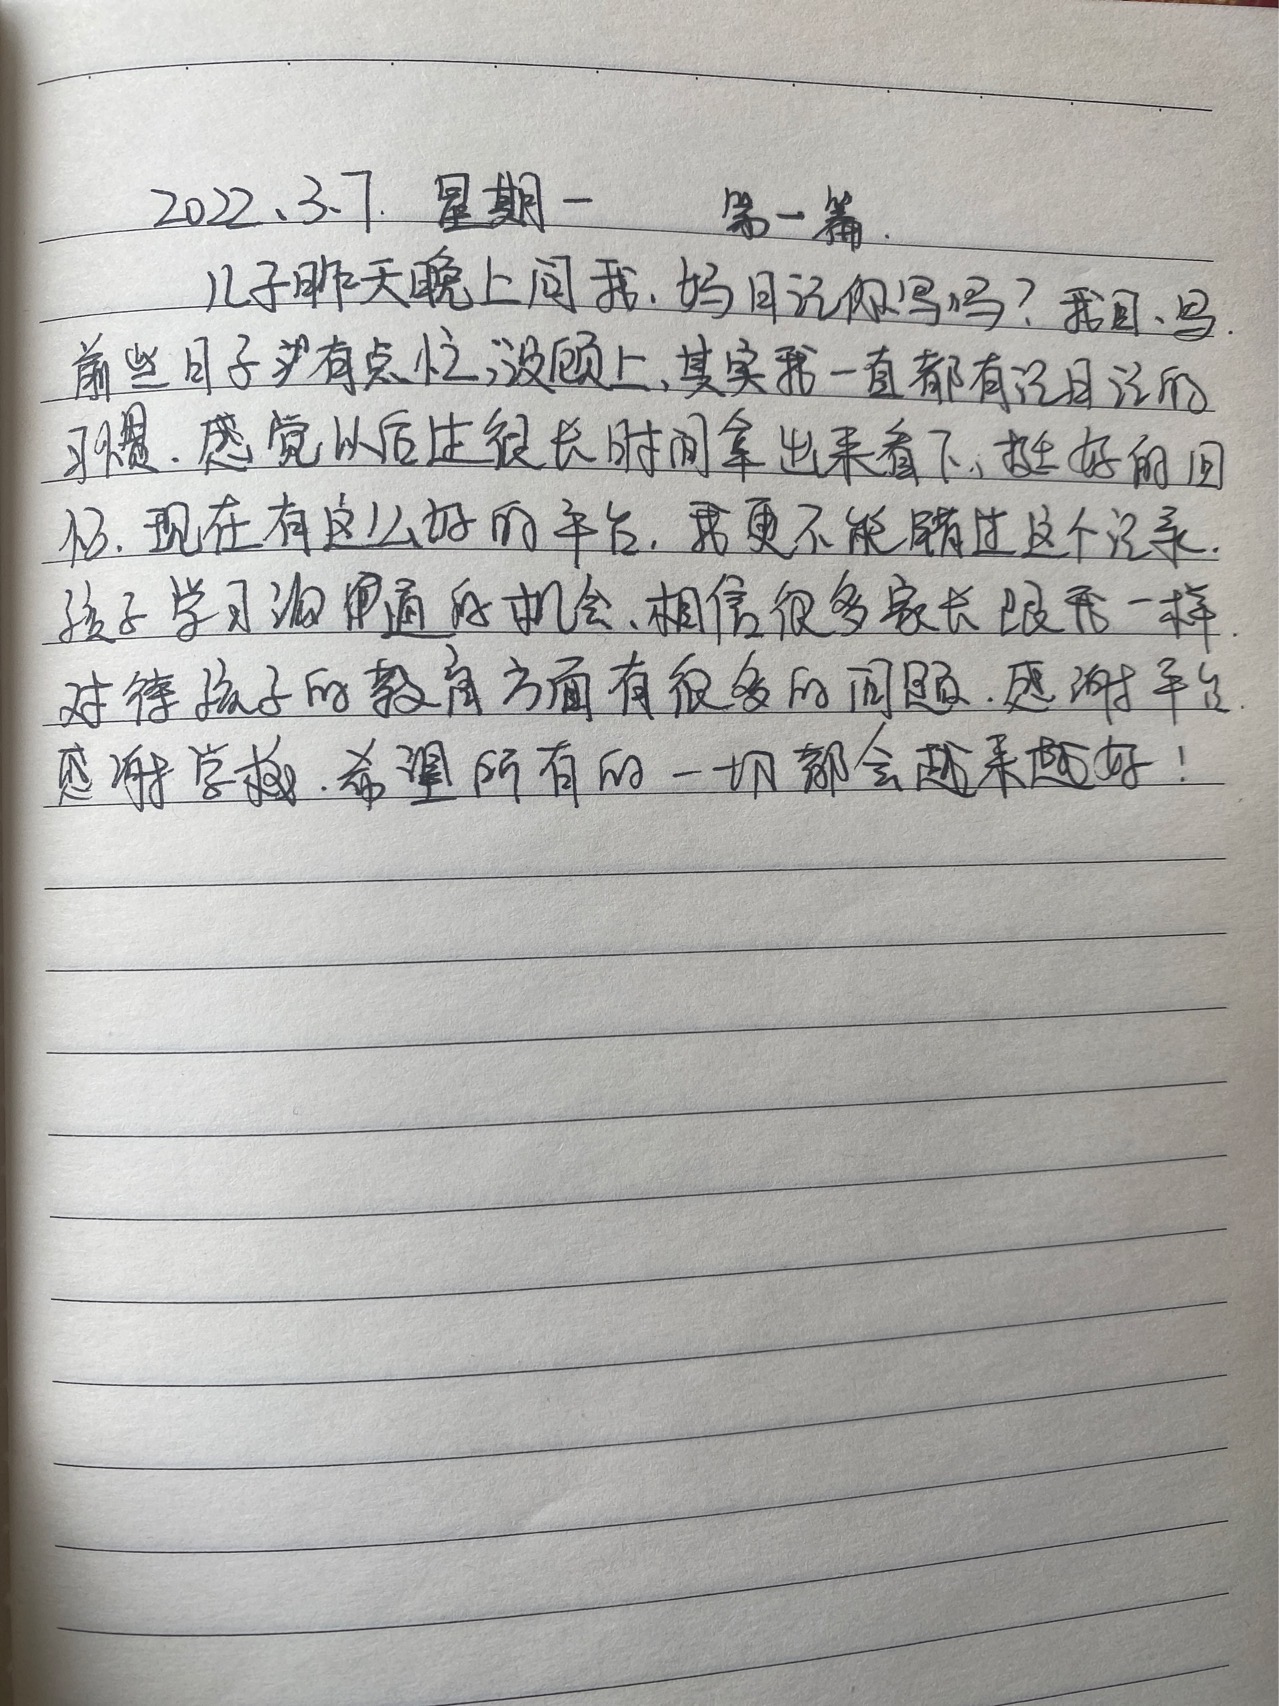 2022、3.7. 星期一 第一篇.
儿子昨天晚上问我、妈日记你写吗?我回、写.
前些日子有点忙,没顾上、其实我一直都有记日记的
习惯.感觉以后过很长时间拿出来看下、挺好的回
忆.现在有这么好的平台.我更不能错过这个记录.
孩子学习沟通的机会、相信很多家长跟我一样.
对待孩子的教育方面有很多的问题.感谢平台.
感谢学校.希望所有的一切都会越来越好!